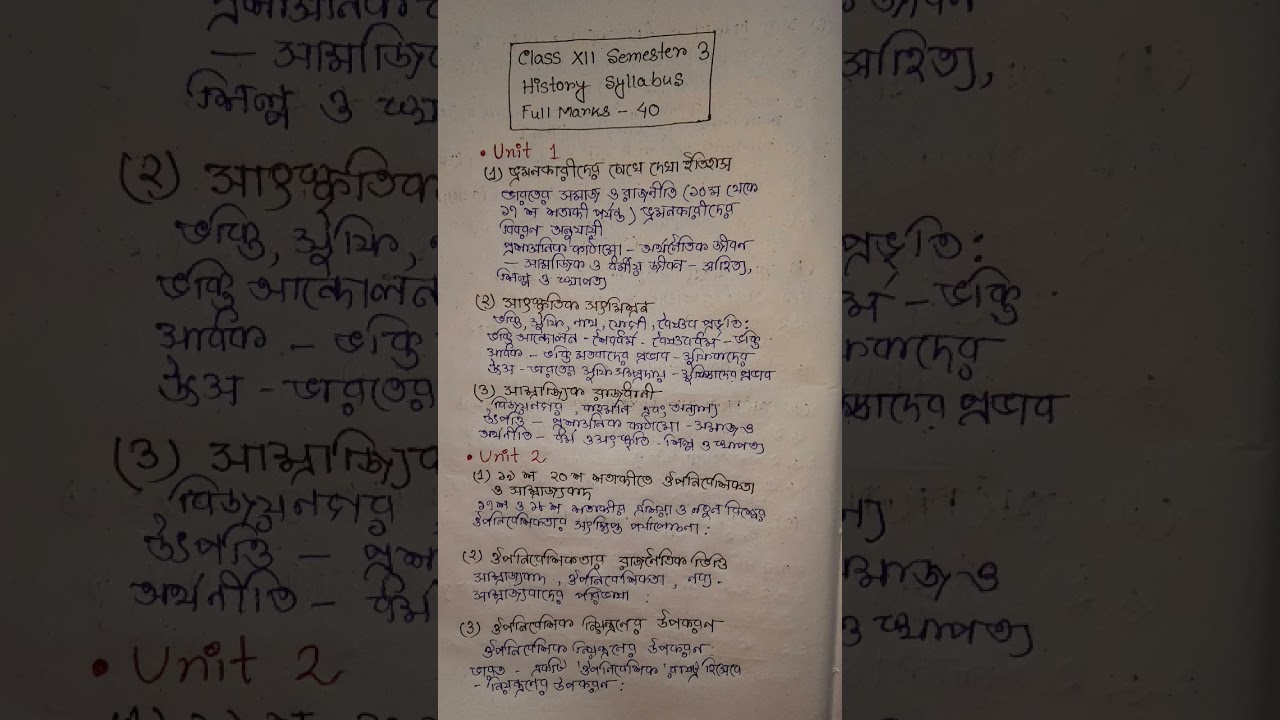 Class XII Semester 3
History Syllabus
Full Marks - 40
• Unit 1
(১) ভ্রমনকারীদের চোখে দেখা ইতিহাস
ভারতের সমাজ ও রাজনীতি (১০ম থেকে
১৭ শ শতাব্দী পর্যন্ত) ভ্রমনকারীদের
বিবরন অনুযায়ী
প্রশাসনিক কাঠামো - অর্থনৈতিক জীবন
- সামাজিক ও ধর্মীয় জীবন - সাহিত্য,
শিল্প ও স্থাপত্য
(২) সাংস্কৃতিক সংমিশ্রন
ভক্তি, সুফি, নাথ, যোগী, বৈষ্ণব প্রভৃতি:
ভক্তি আন্দোলন - শৈবধর্ম - বৈষ্ণবধর্ম - ভক্তি
সাধক - ভক্তি মতবাদের প্রভাব - সুফিবাদের
উৎস - ভারতের সুফি সম্প্রদায় - সুফিবাদের প্রভাব
(৩) সাম্রাজ্যিক রাজধানী
বিজয়নগর, বাহমনি এবং অন্যান্য
উৎপত্তি - প্রশাসনিক কাঠামো - সমাজ ও
অর্থনীতি - ধর্ম ও সংস্কৃতি - শিল্প ও স্থাপত্য
• Unit 2
(১) ১৯ শ ২০ শ শতাব্দীতে ঔপনিবেশিকতা
ও সাম্রাজ্যবাদ
১৭ শ ও ১৮ শ শতাব্দীর এশিয়া ও নতুন বিশ্বের
ঔপনিবেশিকতার সংক্ষিপ্ত পর্যালোচনা:
(২) ঔপনিবেশিকতার রাজনৈতিক ভিত্তি
সাম্রাজ্যবাদ, ঔপনিবেশিকতা, নব্য-
সাম্রাজ্যবাদের পরিভাষা:
(৩) ঔপনিবেশিক নিয়ন্ত্রনের উপকরন
ঔপনিবেশিক নিয়ন্ত্রনের উপকরন:
ভারত - একটি ঔপনিবেশিক রাষ্ট্র হিসেবে
- নিয়ন্ত্রনের উপকরন: